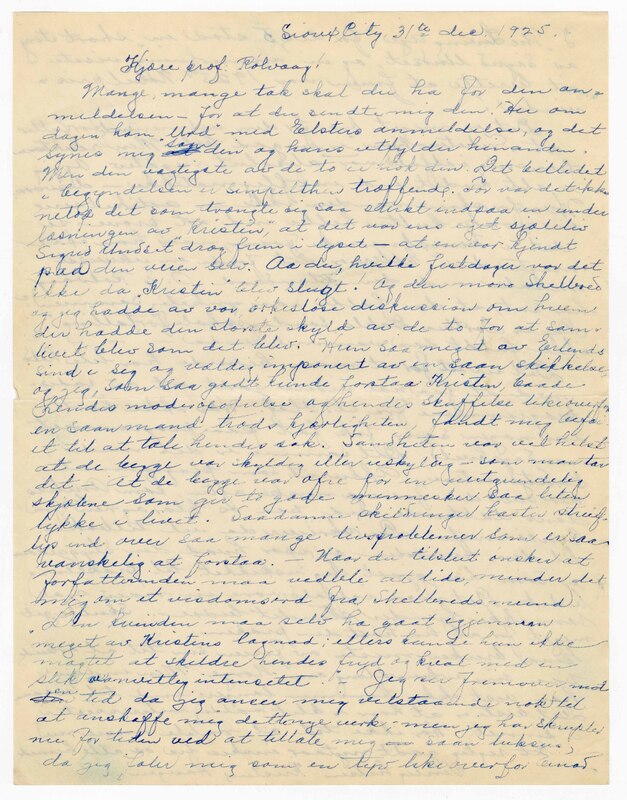 Sioux City, 31te dec. 1925.
Kjære prof. Rolvaag!
Mange, mange tak skal du ha for den an-
meldelsen — for at du sendte mig den! Her om
dagen kom "Urd" med Elsters anmeldelse, og det
synes mig som din og hans utfylder hinanden.
Men den vægtigste av de to er nok din. Det billedet
i begyndelsen er simpelthen træffende. For var det ikke
netop det som trængte sig saa sterkt indpaa en under
læsningen av "Kristin", at det var ens eget sjæleliv
Sigrid Undset drog frem i lyset — at en var kjendt
paa den veien selv. Aa du, hvilke festdager var det
ikke da "Kristin" blev slugt. Og den moro Skellbred
og jeg hadde av vor ørkesløse diskussion om hvem
der hadde den største skyld av de to for at sam-
livet blev som det blev. Hun saa meget av Erlends
sind i sig og vældig imponert av en saan skikkelse,
og jeg, som saa godt kunde forstaa Kristin, baade
hendes modergjopulse og hendes skuffelse likeoverfor
en saan mand trods kjærligheten, fandt mig
it til at tale hendes sak. Sandheten var vel helst
at de begge var skyldig eller uskyldig — som man tar
det — at de begge var ofre for en uutgrundelig
skjæbne som gir to gode mennesker saa liten
lykke i livet. Saadanne skildringer kaster streif-
lys ind over saa mange livsproblemer som er saa
vanskelig at forstaa. — Naar du tilslut ønsker at
forfatterinden maa vedbli at lide, minder det
mig om et visdomsord fra Skellbreds mund:
"Den kvinden maa selv ha gaat igjennem
meget av Kristins lagnad; ellers kunde hun ikke
magtet at skildre hendes fryd og kval med en
slik vanvittig intensitet." — Jeg ser fremover mod
en tid da jeg anser mig velstaaende nok til
at anskaffe mig dette nye verk; men jeg har skrupler
nu for tiden ved at tillate mig saan luksus,
da jeg føler mig som en tyv likeoverfor Einar